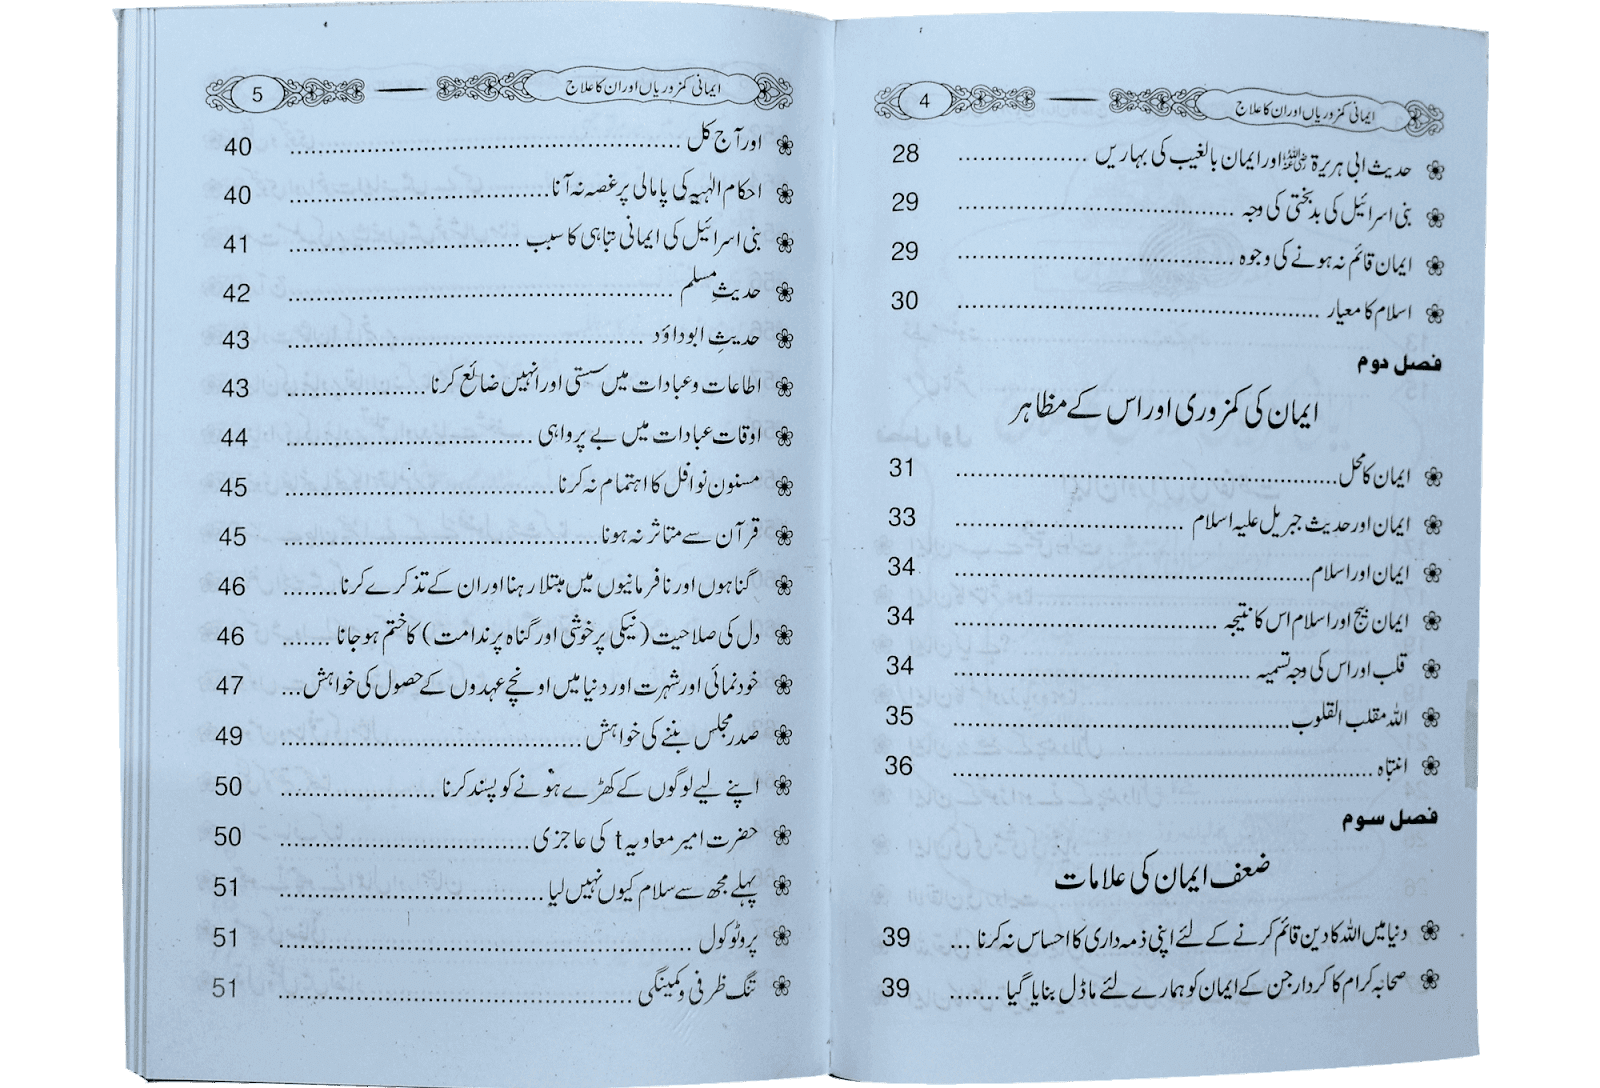 4 ایمانی کمزوریاں اور ان کا علاج
حدیث ابی ہریرۃ رضی اللہ عنہ اور ایمان بالغیب کی بہاریں ................ 28
بنی اسرائیل کی بدبختی کی وجہ ................ 29
ایمان قائم نہ ہونے کی وجوہ ................ 29
اسلام کا معیار ................ 30
فصل دوم
ایمان کی کمزوری اور اس کے مظاہر
ایمان کا محل ................ 31
ایمان اور حدیث جبریل علیہ اسلام ................ 33
ایمان اور اسلام ................ 34
ایمان بیج اور اسلام اس کا نتیجہ ................ 34
قلب اور اس کی وجہ تسمیہ ................ 34
اللہ مقلب القلوب ................ 35
انتباہ ................ 36
فصل سوم
ضعف ایمان کی علامات
دنیا میں اللہ کا دین قائم کرنے کے لئے اپنی ذمہ داری کا احساس نہ کرنا ... 39
صحابہ کرام کا کردار جن کے ایمان کو ہمارے لئے ماڈل بنایا گیا ....... 39
5 ایمانی کمزوریاں اور ان کا علاج
اور آج کل ................ 40
احکام الٰہیہ کی پامالی پر غصہ نہ آنا ................ 40
بنی اسرائیل کی ایمانی تباہی کا سبب ................ 41
حدیثِ مسلم ................ 42
حدیثِ ابوداؤد ................ 43
اطاعات و عبادات میں سستی اور انہیں ضائع کرنا ................ 43
اوقات عبادات میں بے پرواہی ................ 44
مسنون نوافل کا اہتمام نہ کرنا ................ 45
قرآن سے متاثر نہ ہونا ................ 45
گناہوں اور نافرمانیوں میں مبتلا رہنا اور ان کے تذکرے کرنا ........ 46
دل کی صلاحیت (نیکی پر خوشی اور گناہ پر ندامت) کا ختم ہو جانا ........ 46
خودنمائی اور شہرت اور دنیا میں اونچے عہدوں کے حصول کی خواہش ... 47
صدر مجلس بننے کی خواہش ................ 49
اپنے لیے لوگوں کے کھڑے ہونے کو پسند کرنا ................ 50
حضرت امیر معاویہ t کی عاجزی ................ 50
پہلے مجھ سے سلام کیوں نہیں لیا ................ 51
پروٹوکول ................ 51
تنگ ظرفی و کمینگی ................ 51